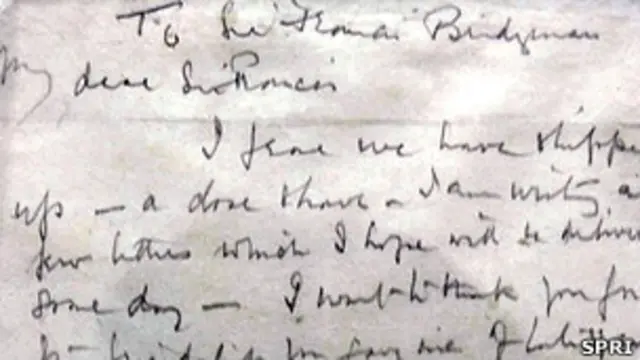 To Sir Francis Bridgeman
My dear Sir Francis
I fear we have shippe
up — a close shave – I am writing a
few letters which I hope will be delivere
some day — I want to thank you for
you gave me of
SPRI